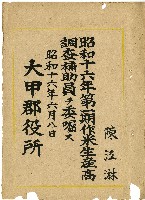 陳江淋
昭和十六年第一期作米生産高
調査補助員ヲ委囑ス
昭和十六年六月八日
大甲郡役所